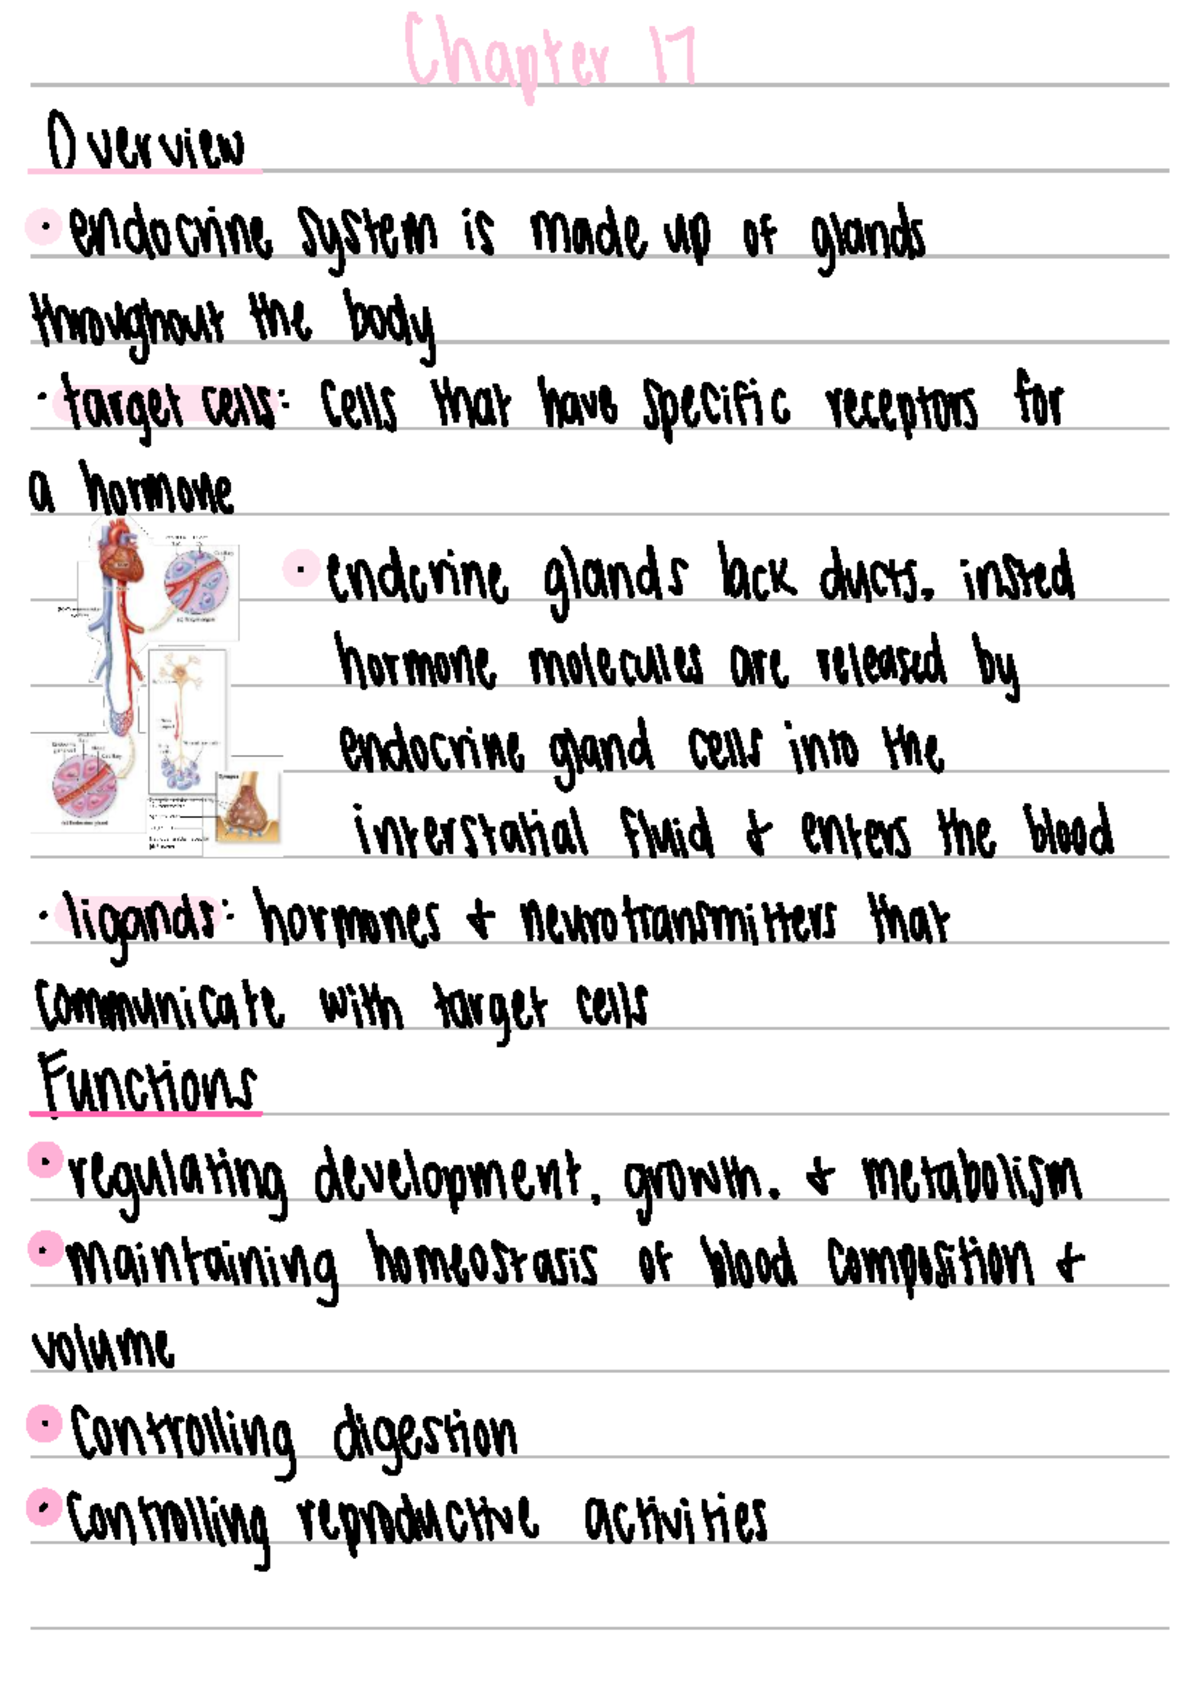 Chapter 17
Overview
· endocrine system is made up of glands
throughout the body
· target cells: Cells that have specific receptors for
a hormone
· endcrine glands lack ducts, insted
hormone molecules are released by
endocrine gland cells into the
interstatial fluid & enters the blood
· ligands: hormones & neurotransmitters that
communicate with target cells
Functions
· regulating development, growth, & metabolism
· maintaining homeostasis of blood composition &
volume
· Controlling digestion
· Controlling reproductive activities